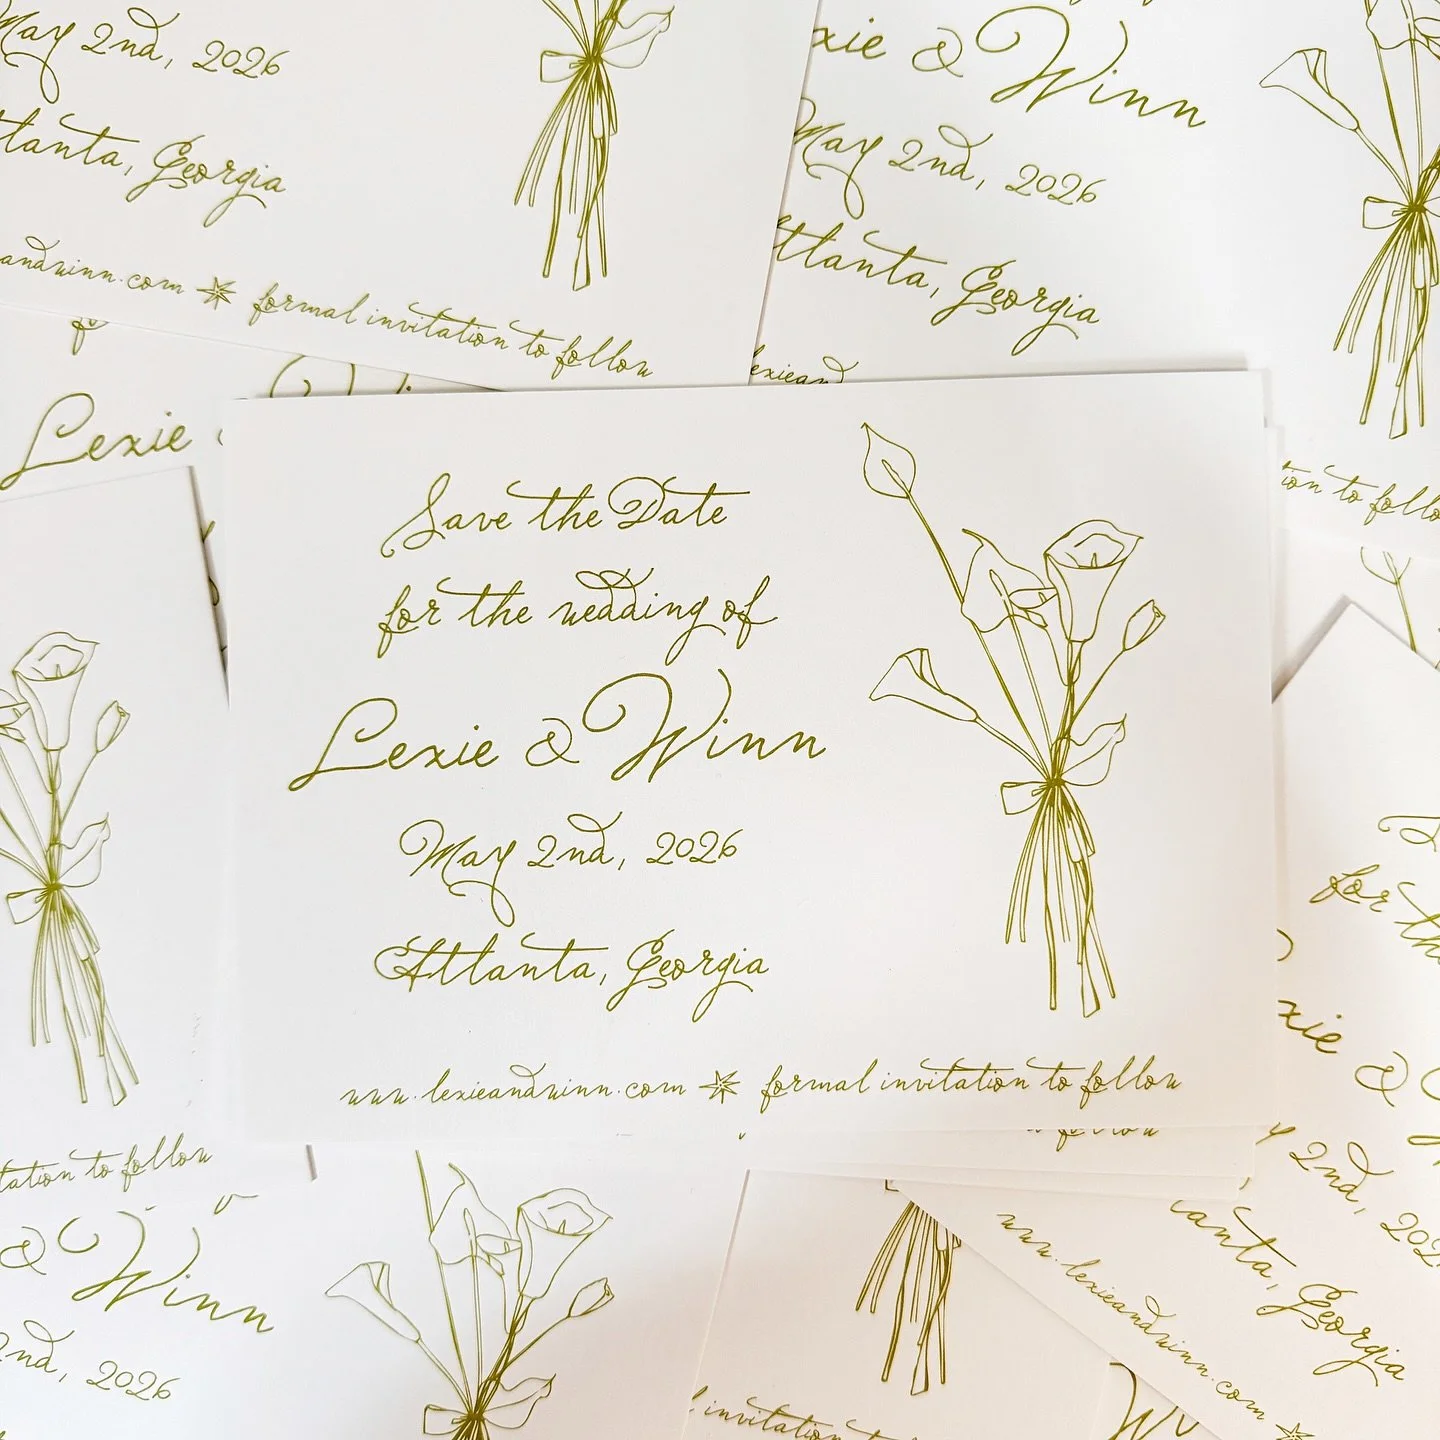 May 2nd, 2026
Atlanta, Georgia
andwinn.com formal invitation to follow
xie & Winn
May 2nd, 2026
Atlanta, Georgia
lexieand
ion to follo
Lexie
Save the Date
for the wedding of
Lexie & Winn
May 2nd, 2026
Atlanta, Georgia
www.lexieandwinn.com formal invitation to follow
tation to follow
& Winn
2nd, 2026
invitation to follo
for the
xie &
y 2nd, 202
lanta, Georgia
www.lexieandwinn.com